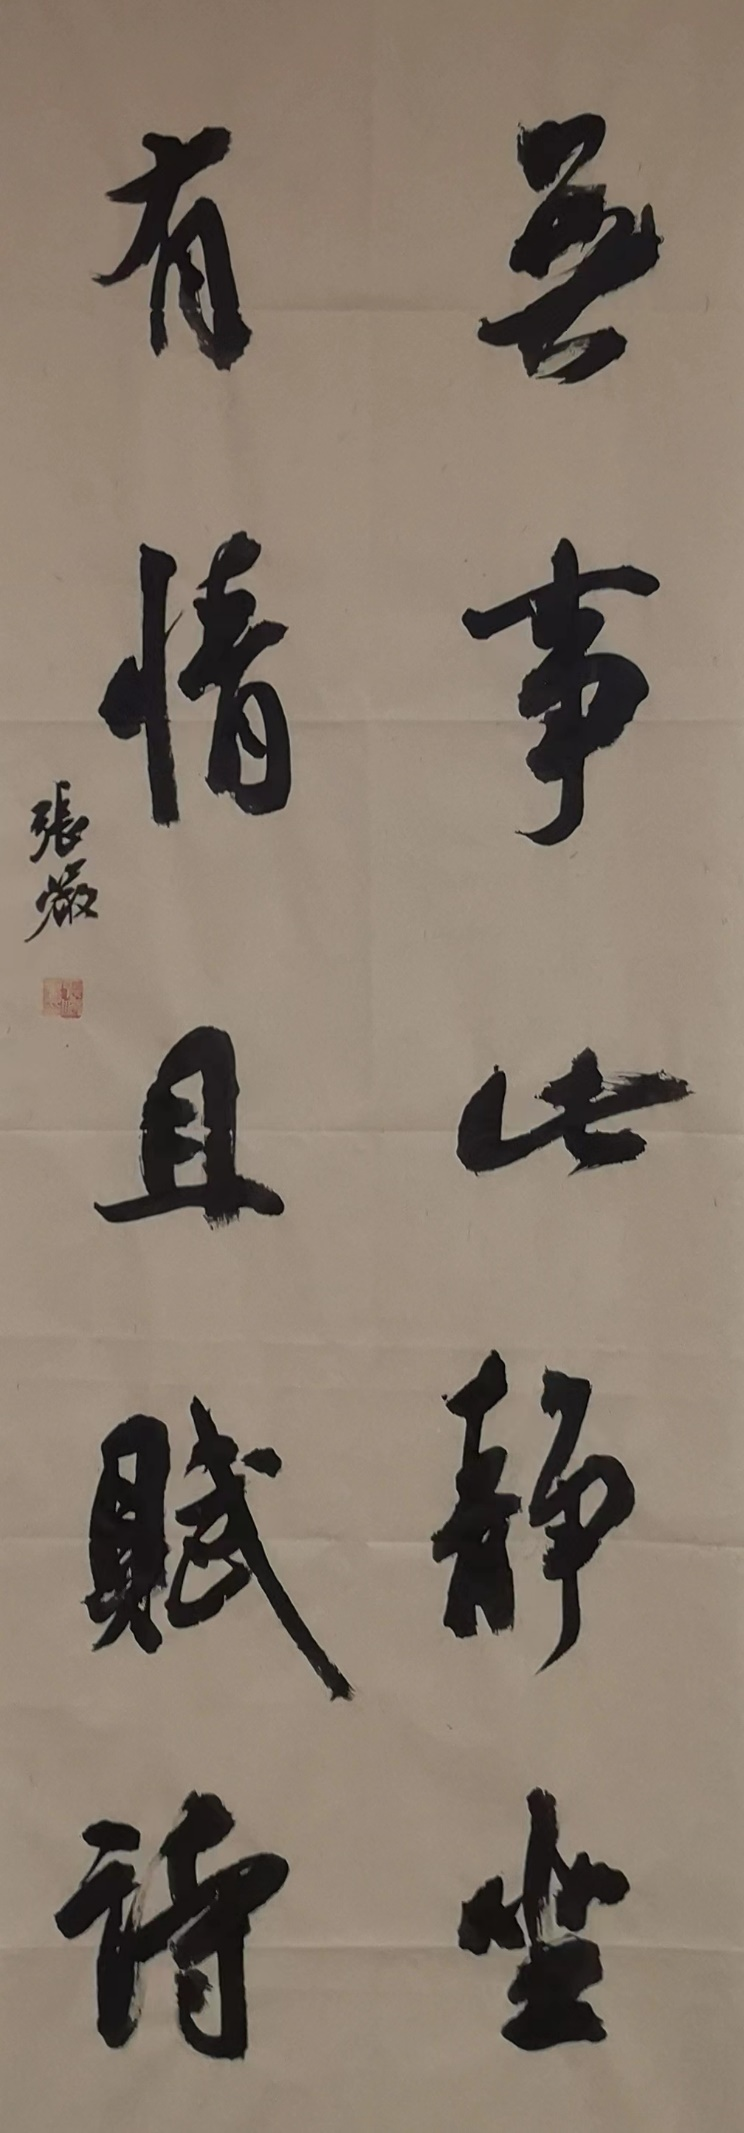 無事此靜坐
有情且賦詩
張嚴